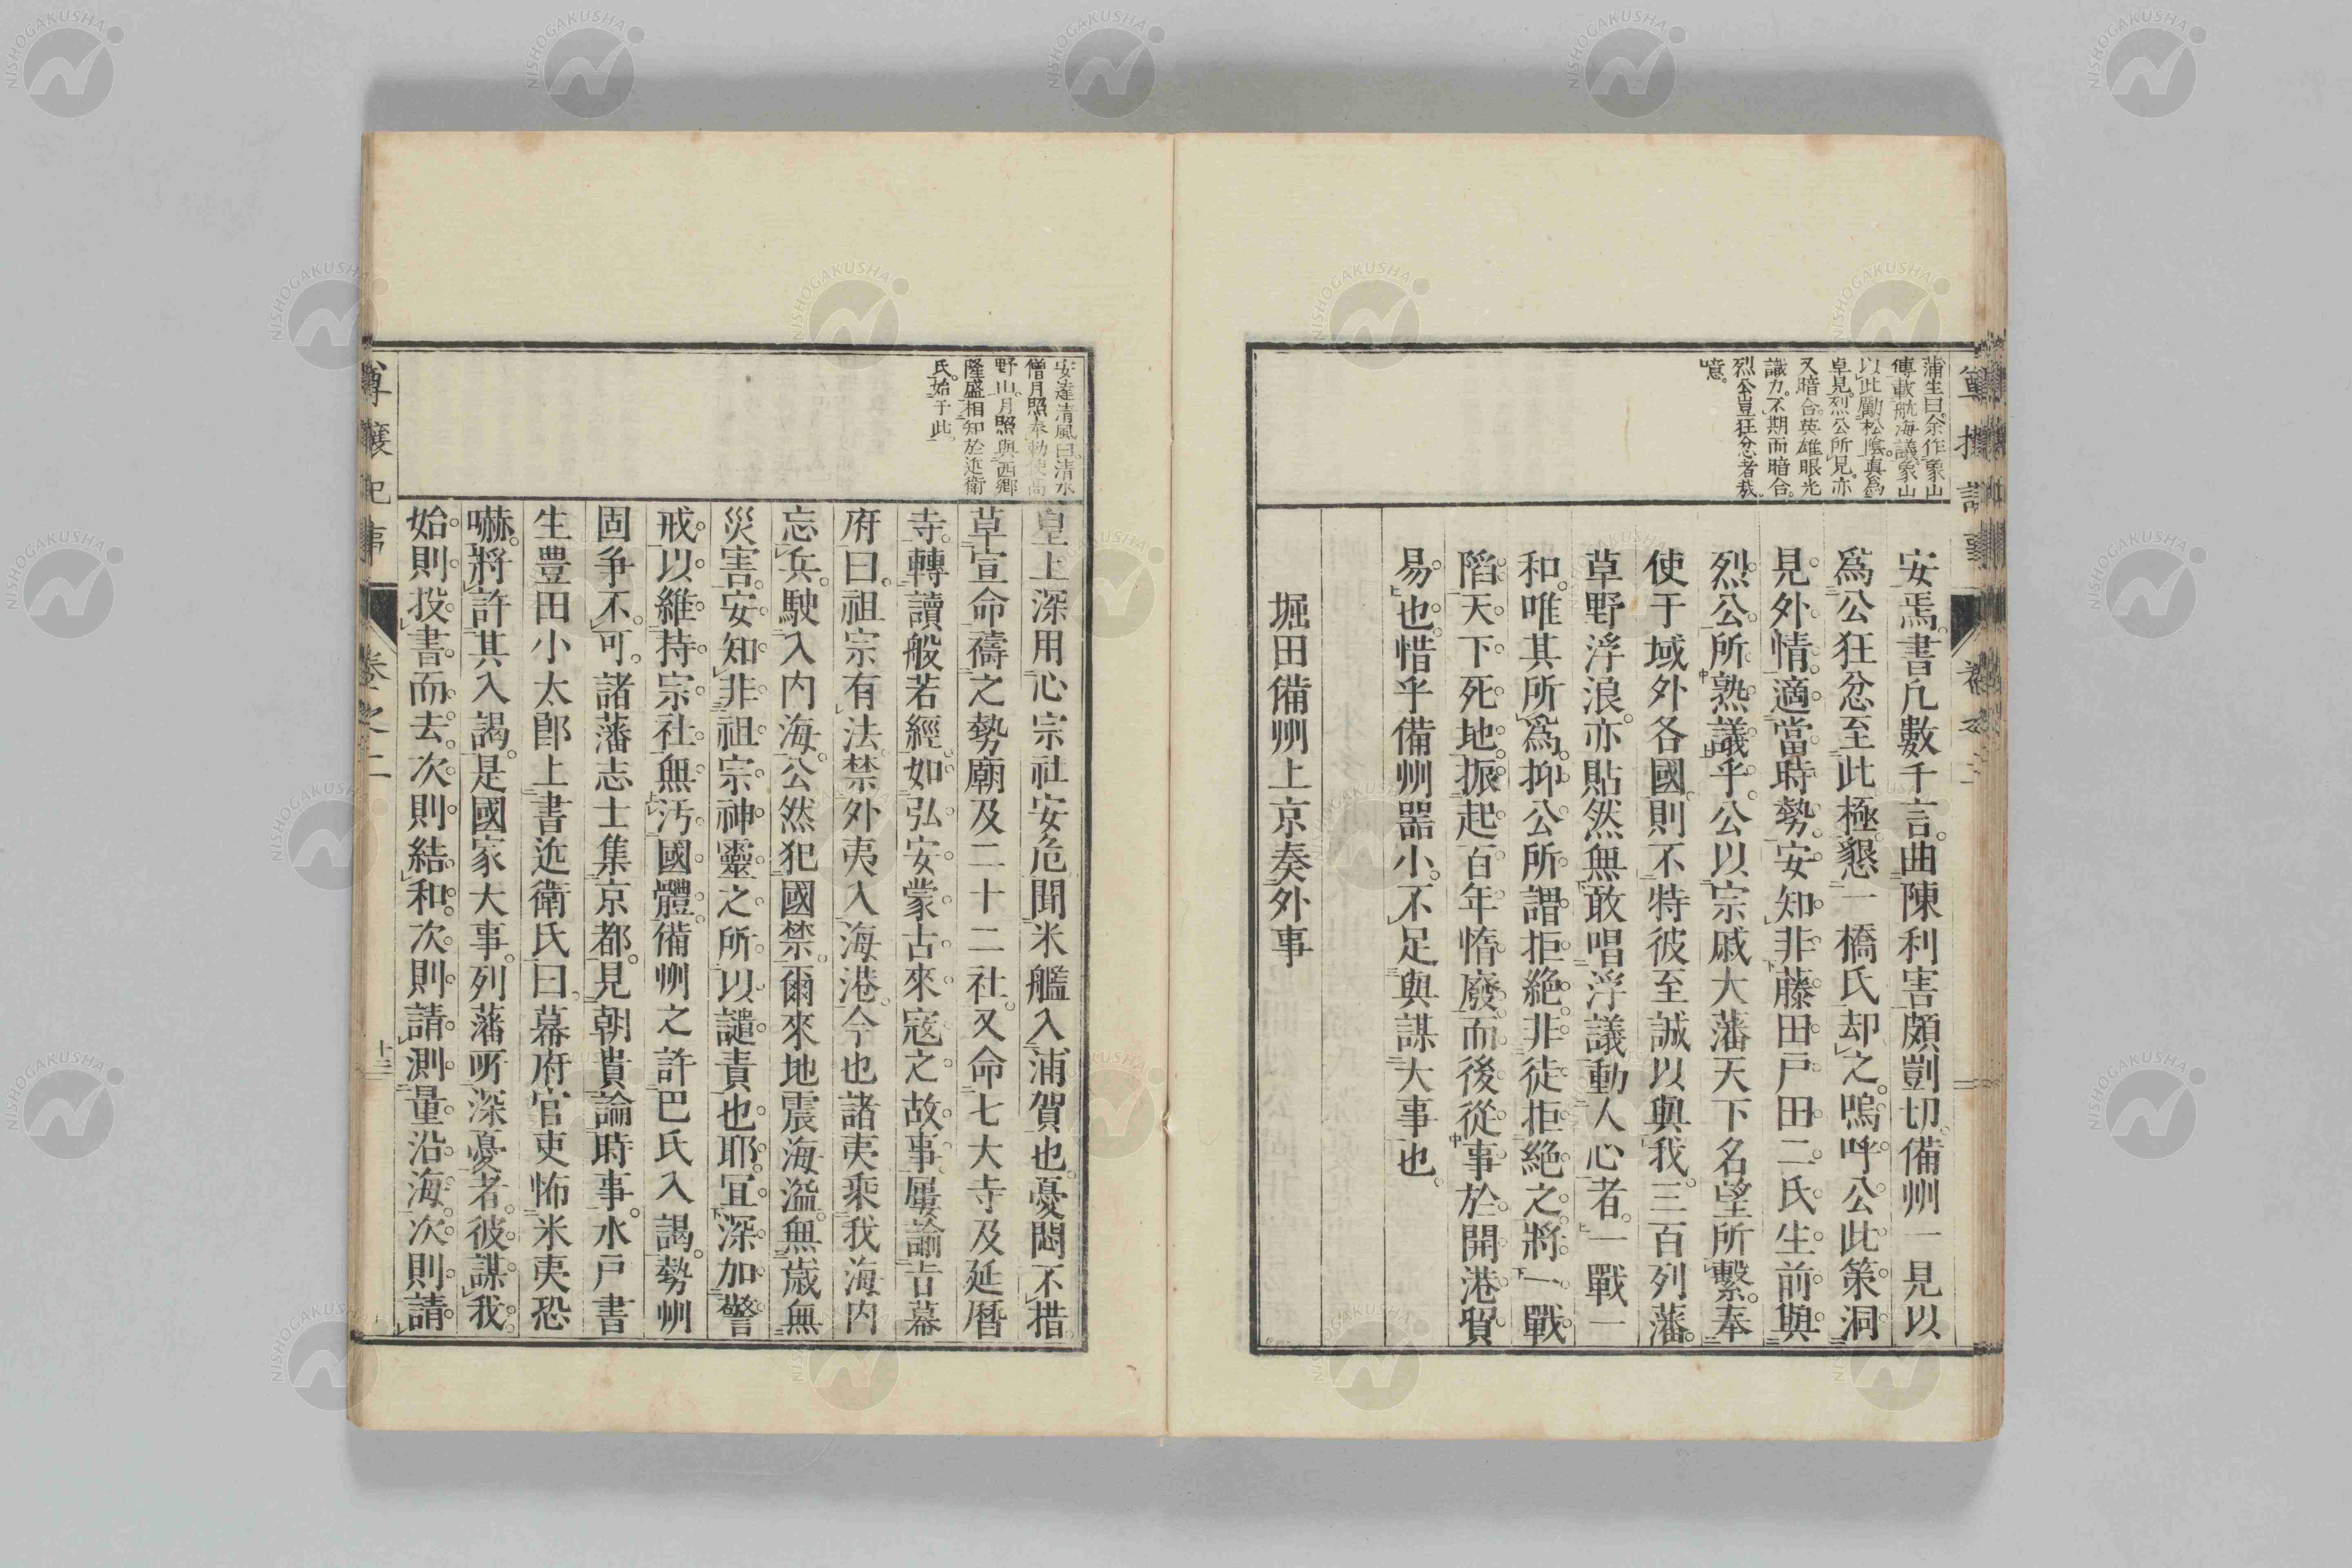 蒲生曰。余作象山
傳載航海議。象山
以此勵松陰。真爲
卓見。烈公所見。亦
又暗合。英雄眼光
識力。不期而暗合。
烈公豈狂忿者哉。
噫。
安焉。書凡數千言。曲陳利害。頗剴切。備州一見以
爲公狂忿至此極。懇一橋氏却之。嗚呼。公此策。洞
見外情。適當時勢。安知非藤田戸田二氏生前與
烈公所熟議乎。公以宗戚大藩天下名望所繫。奉
使于域外各國。則不特彼至誠以與我。三百列藩。
草野浮浪。亦貼然無敢唱浮議動人心者。一戰一
和。唯其所爲。抑公所謂拒絶。非徒拒絶之。將一戰
陷天下死地。振起百年惰廢。而後從事於開港貿
易也。惜乎備州器小。不足與謀大事也。
堀田備州上京奏外事
安達清風曰。清水
僧月照奉勅使高
野山。月照與西郷
隆盛相知於近衛
氏。始于此。
皇上深用心宗社安危。聞米艦入浦賀也。憂悶不措。
草宣命禱之勢廟及二十二社。又命七大寺及延暦
寺。轉讀般若經。如弘安蒙古來寇之故事。屢諭吿幕
府曰。祖宗有法。禁外夷入海港。今也諸夷乘我海内
忘兵。駛入内海。公然犯國禁。爾來地震海溢。無歳無
災害。安知非祖宗神靈之所以譴責也耶。宜深加警
戒。以維持宗社。無汚國體。備州之許巴氏入謁。勢州
固争不可。諸藩志士集京都。見朝貴論時事。水戸書
生豊田小太郎上書近衛氏曰。幕府官吏怖米夷恐
嚇。將許其入謁。是國家大事。列藩所深憂者。彼謀我。
始則投書而去。次則結和。次則請測量沿海。次則請
尊攘紀事
卷之二
十三